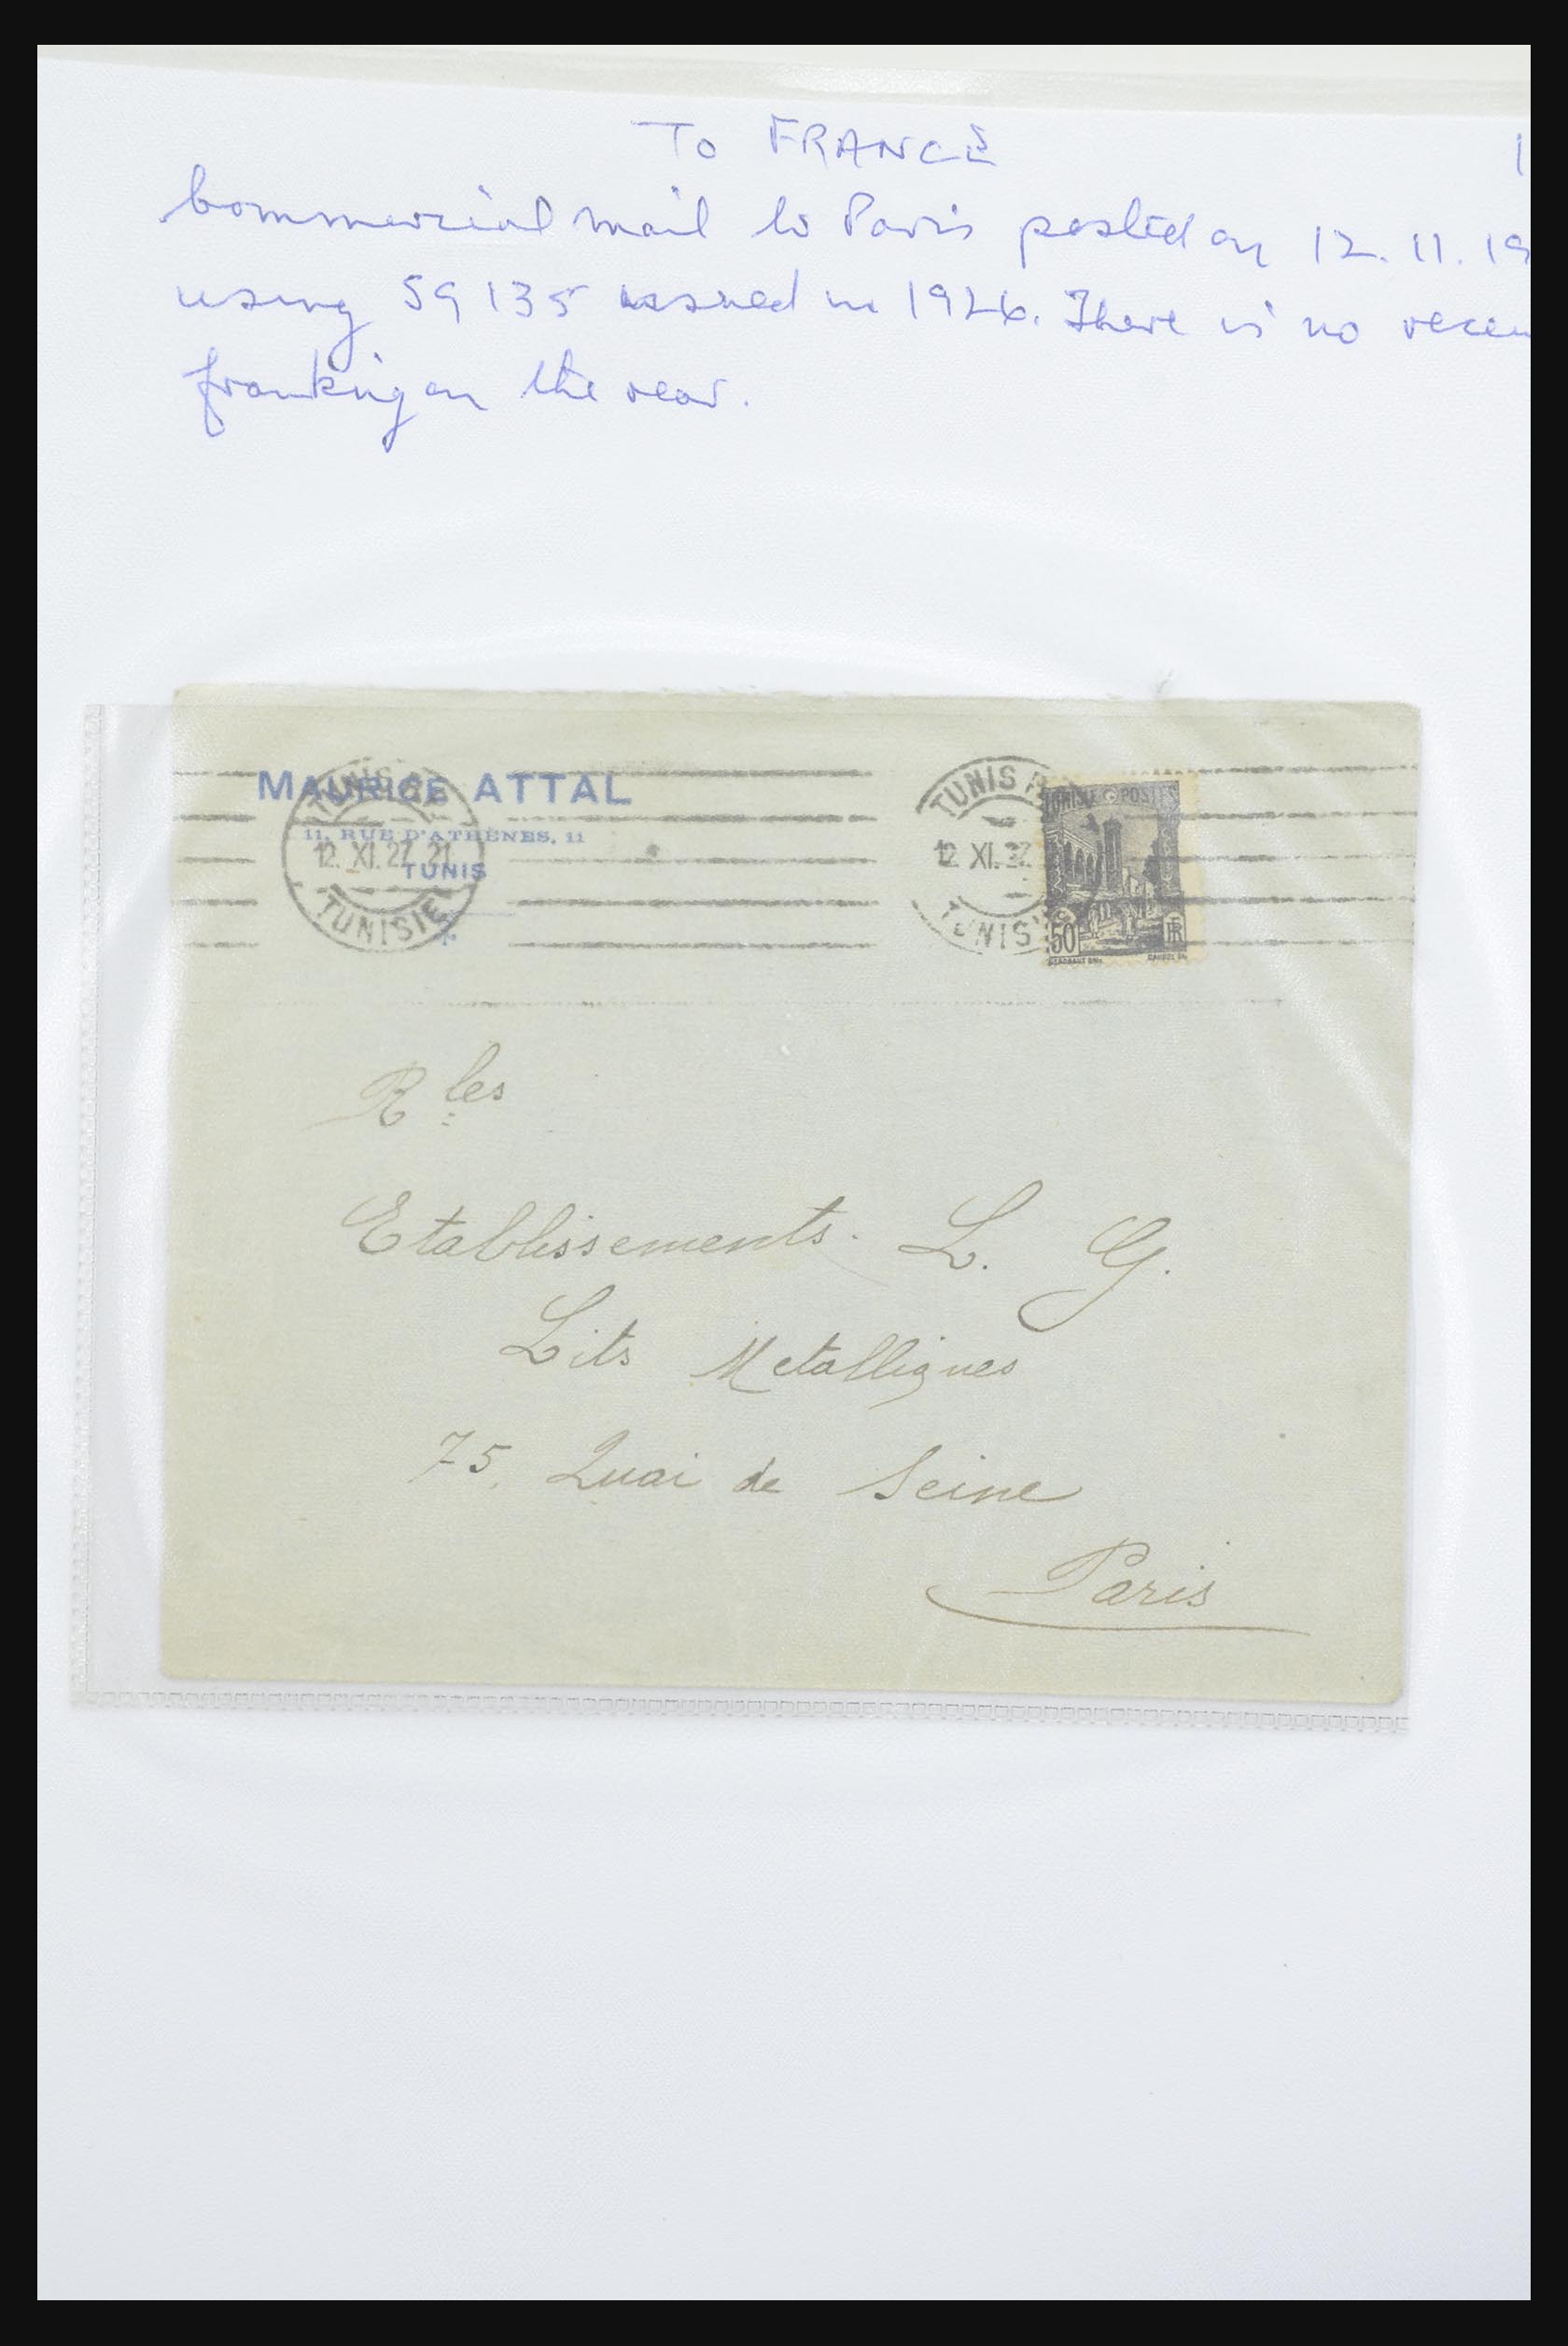 To FRANCE 1
Commercial mail to Paris posted on 12.11.19
using SG 135 issued in 1926. There is no
franking on the rear.
MAURICE ATTAL
11, RUE D'ATHÈNES, 11
TUNIS
12. XI. 27. 21
TUNISIE
TUNIS
12. XI. 27
TUNIS
TUNISIE POSTES
50 RF
Rles
Etablissements. L. G.
Lits Metalliques
75. Quai de Seine
Paris